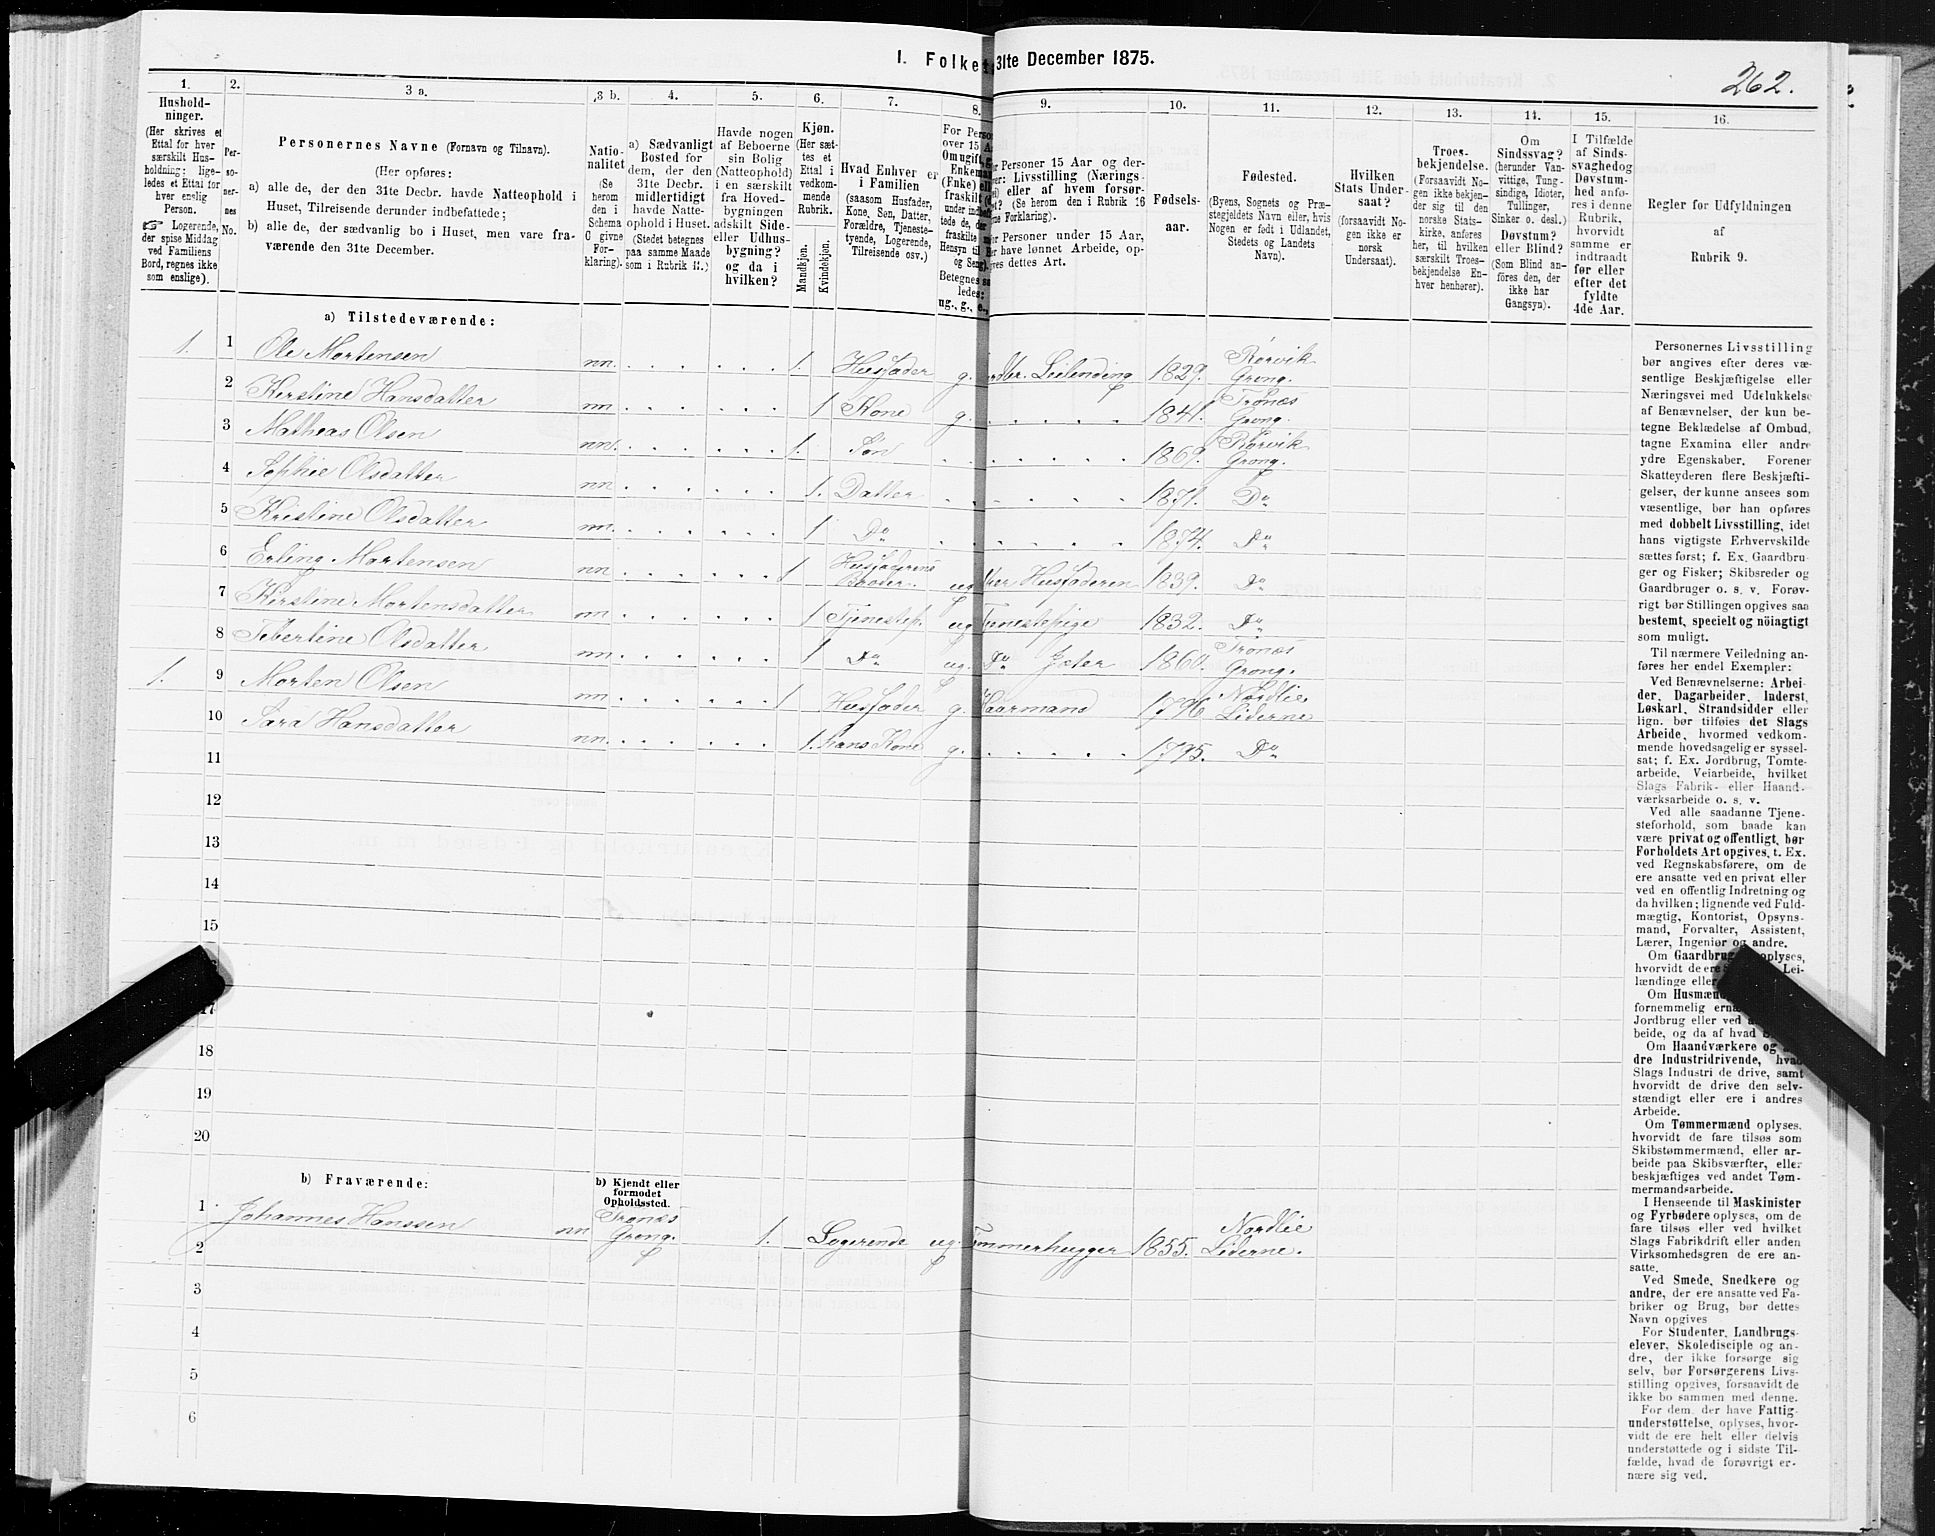 1. Folket 31te December 1875.
262.
1. 2. 3 a. 3 b. 4. 5. 6. 7. 8. 9. 10. 11. 12. 13. 14. 15. 16.
Hushold-
ninger.
(Her skrives et
Ettal for hver
særskilt Hus-
holdning; lige-
ledes et Ettal for
hver enslig
Person.
☞ Logerende,
der spise Middag
ved Familiens
Bord, regnes ikke
som enslige).
Per-
so-
ner-
nes
No.
Personernes Navne (Fornavn og Tilnavn).
(Her opføres:
a) alle de, der den 31te Decbr. havde Natteophold i
Huset, Tilreisende derunder indbefattede;
b) alle de, der sædvanlig bo i Huset, men vare fra-
værende den 31te December.
Natio-
nalitet
(Se
herom
den i
Schema
C givne
For-
klaring).
a) Sædvanligt
Bosted for
dem, der den
31te Decbr.
midlertidigt
havde Natte-
ophold i Huset.
(Stedet betegnes
paa samme Maade
som i Rubrik 11.)
Havde nogen
af Beboerne
sin Bolig
(Natteophold)
i en særskilt
fra Hoved-
bygningen
adskilt Side-
eller Udhus-
bygning?
og da i
hvilken?
Kjøn.
(Her sæt-
tes et
Ettal i
vedkom-
mende
Rubrik.
Mandkjøn.
Kvindekjøn.
Hvad Enhver er
i Familien
(saasom Husfader,
Kone, Søn, Datter,
Forældre, Tjeneste-
tyende, Logerende,
Tilreisende osv.)
For Perso
over 15 A
Om ugift, g
Enkeman
(Fnke) ell
fraskilt (
under indbe
tede de, de
fraskilte
Hensyn til
og Seng).
Betegnes sa
ledes:
ug., g., e.,
r Personer 15 Aar og der-
er: Livsstilling (Nærings-
ei) eller af hvem forsør-
t? (Se herom den i Rubrik 16
ne Forklaring).
r Personer under 15 Aar,
er have lønnet Arbeide, op-
ves dettes Art.
Fødsels-
aar.
Fødested.
(Byens, Sognets og Præ-
stegjeldets Navn eller, hvis
Nogen er født i Udlandet,
Stedets og Landets
Navn).
Hvilken
Stats Under-
saat?
(forsaavidt No-
gen ikke er
norsk
Undersaat).
Troes-
bekjendelse.
(Forsaavidt No-
gen ikke bekjen-
der sig til den
norske Stats-
kirke, anføres
her, til hvilken
særskilt Troes-
bekjendelse En-
hver henhører).
Om
Sindssvag?
(herunder Van-
vittige, Tung-
sindige, Idioter,
Tullinger,
Sinker o. desl.)
Døvstum?
eller Blind?
(Som Blind an-
føres den, der
ikke har
Gangsyn).
I Tilfælde
af Sinds-
svaghedog
Døvstum-
hed anfø-
res i denne
Rubrik,
hvorvidt
samme er
indtraadt
før eller
efter det
fyldte
4de Aar.
Regler for Udfyldningen
af
Rubrik 9.
a) Tilstedeværende:
1. 1 Ole Mortensen nn. 1. Husfader g. Leilending 1829. Rørvik Grong.
2 Kerstine Hansdatter nn 1 Kone g. 1841. Trones Grong.
3 Matheas Olsen nn. 1. Søn 1869. Rørvik Grong.
4 Sophie Olsdatter nn 1. Datter 1871. Do
5 Kristine Olsdatter nn. 1 Do 1874. Do
6 Erling Mortensen nn 1 Husfaderens Broder ug Husfaderen 1839. Do
7 Kerstine Mortensdatter nn 1 Tjenestep. ug Tjenestepige 1832. Do
8 Olsdatter nn. 1 Do ug. Do 1860. Trones Grong.
1. 9 Morten Olsen nn 1 Husfader g. Kaarmand 1796 Nordlie Lierne
10 Sara Hansdatter nn. 1. hans Kone g. 1795. Do
11
12
13
14
15
17
18
19
20
b) Fraværende:
b) Kjendt eller
formodet
Opholdssted.
1 Johannes Hanssen nn Trones Grong. 1. Logerende ug. Tømmerhugger 1855. Nordlie Lierne.
2
3
4
5
6
Personernes Livsstilling
bør angives efter deres væ-
sentlige Beskjæftigelse eller
Næringsvei med Udelukkelse
af Benævnelser, der kun be-
tegne Beklædelse af Ombud,
tagne Examina eller andre
ydre Egenskaber. Forener
Skatteyderen flere Beskjæfti-
gelser, der kunne ansees som
væsentlige, bør han opføres
med dobbelt Livsstilling, idet
hans vigtigste Erhvervskilde
sættes først; f. Ex. Gaardbru-
ger og Fisker; Skibsreder og
Gaardbruger o. s. v. Forøv-
rigt bør Stillingen opgives saa
bestemt, specielt og nöiagtigt
som muligt.
Til nærmere Veiledning an-
føres her endel Exempler:
Ved Benævnelserne: Arbei-
der, Dagarbeider, Inderst,
Løskarl, Strandsidder eller
lign. bør tilføies det Slags
Arbeide, hvormed vedkom-
mende hovedsagelig er syssel-
sat; f. Ex. Jordbrug, Tomte-
arbeide, Veiarbeide, hvilket
Slags Fabrik- eller Haand-
værksarbeide o. s. v.
Ved alle saadanne Tjene-
steforhold, som baade kan
være privat og offentligt, bør
Forholdets Art opgives, t. Ex.
ved Regnskabsførere, om de
ere ansatte ved en privat eller
ved en offentlig Indretning og
da hvilken; lignende ved Fuld-
mægtig, Kontorist, Opsyns-
mand, Forvalter, Assistent,
Lærer, Ingeniør og andre.
Om Gaardbrug oplyses,
hvorvidt de ere Lei-
lændinge eller
Om Husmænd
fornemmelig ern
Jordbrug eller ved
beide, og da af hvad
Om Haandværkere og
dre Industridrivende, hvad
Slags Industri de drive, samt
hvorvidt de drive den selv-
stændigt eller ere i andres
Arbeide.
Om Tømmermænd oplyses,
hvorvidt de fare tilsøs som
Skibstømmermænd, eller ar-
beide paa Skibsværfter, eller
beskjæftiges ved andet Tøm-
mermandsarbeide.
I Henseende til Maskinister
og Fyrbødere oplyses, om de
fare tilsøs eller ved hvilket
Slags Fabrikdrift eller anden
Virksomhedsgren de ere an-
satte.
Ved Smede, Snedkere og
andre, der ere ansatte ved Fa-
briker og Brug, bør dettes
Navn opgives
For Studenter, Landbrugs-
elever, Skoledisciple og an-
dre, der ikke forsørge sig
selv, bør Forsørgerens Livs-
stilling opgives, forsaavidt de
ikke bo sammen med denne.
For dem, der have Fattig-
understøttelse, oplyses, hvor-
vidt de ere helt eller delvis
understøttede og i sidste Til-
fælde, hvad de forøvrigt er-
nære sig ved.